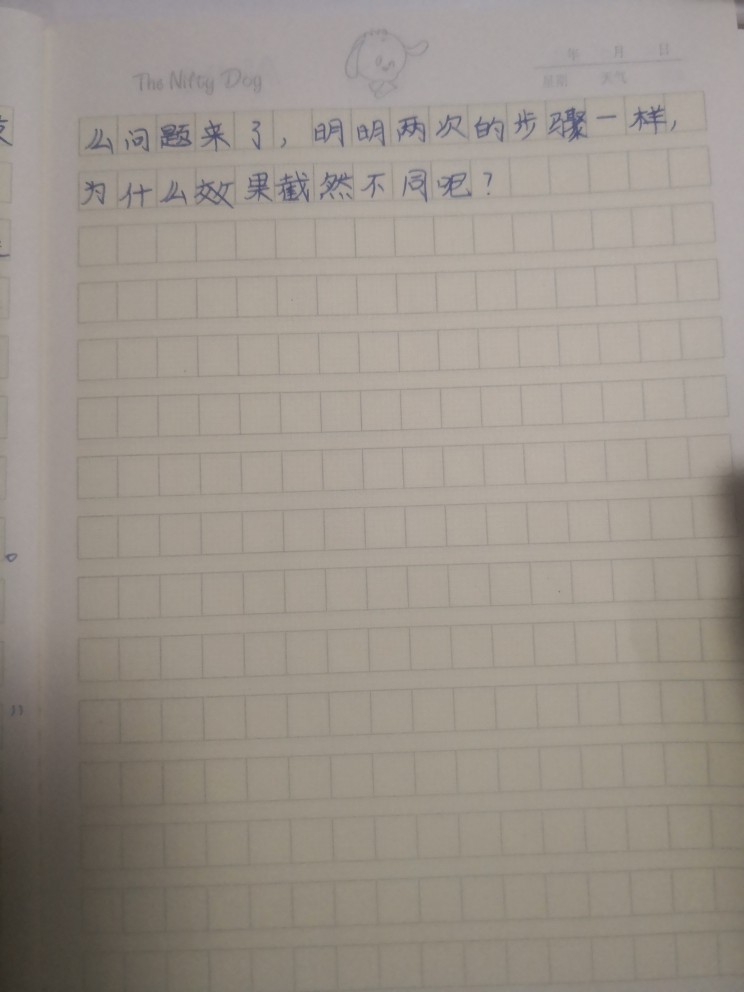 The Nifty Dog
年 月 日
星期 天气
么问题来了，明明两次的步骤一样，
为什么效果截然不同吧？